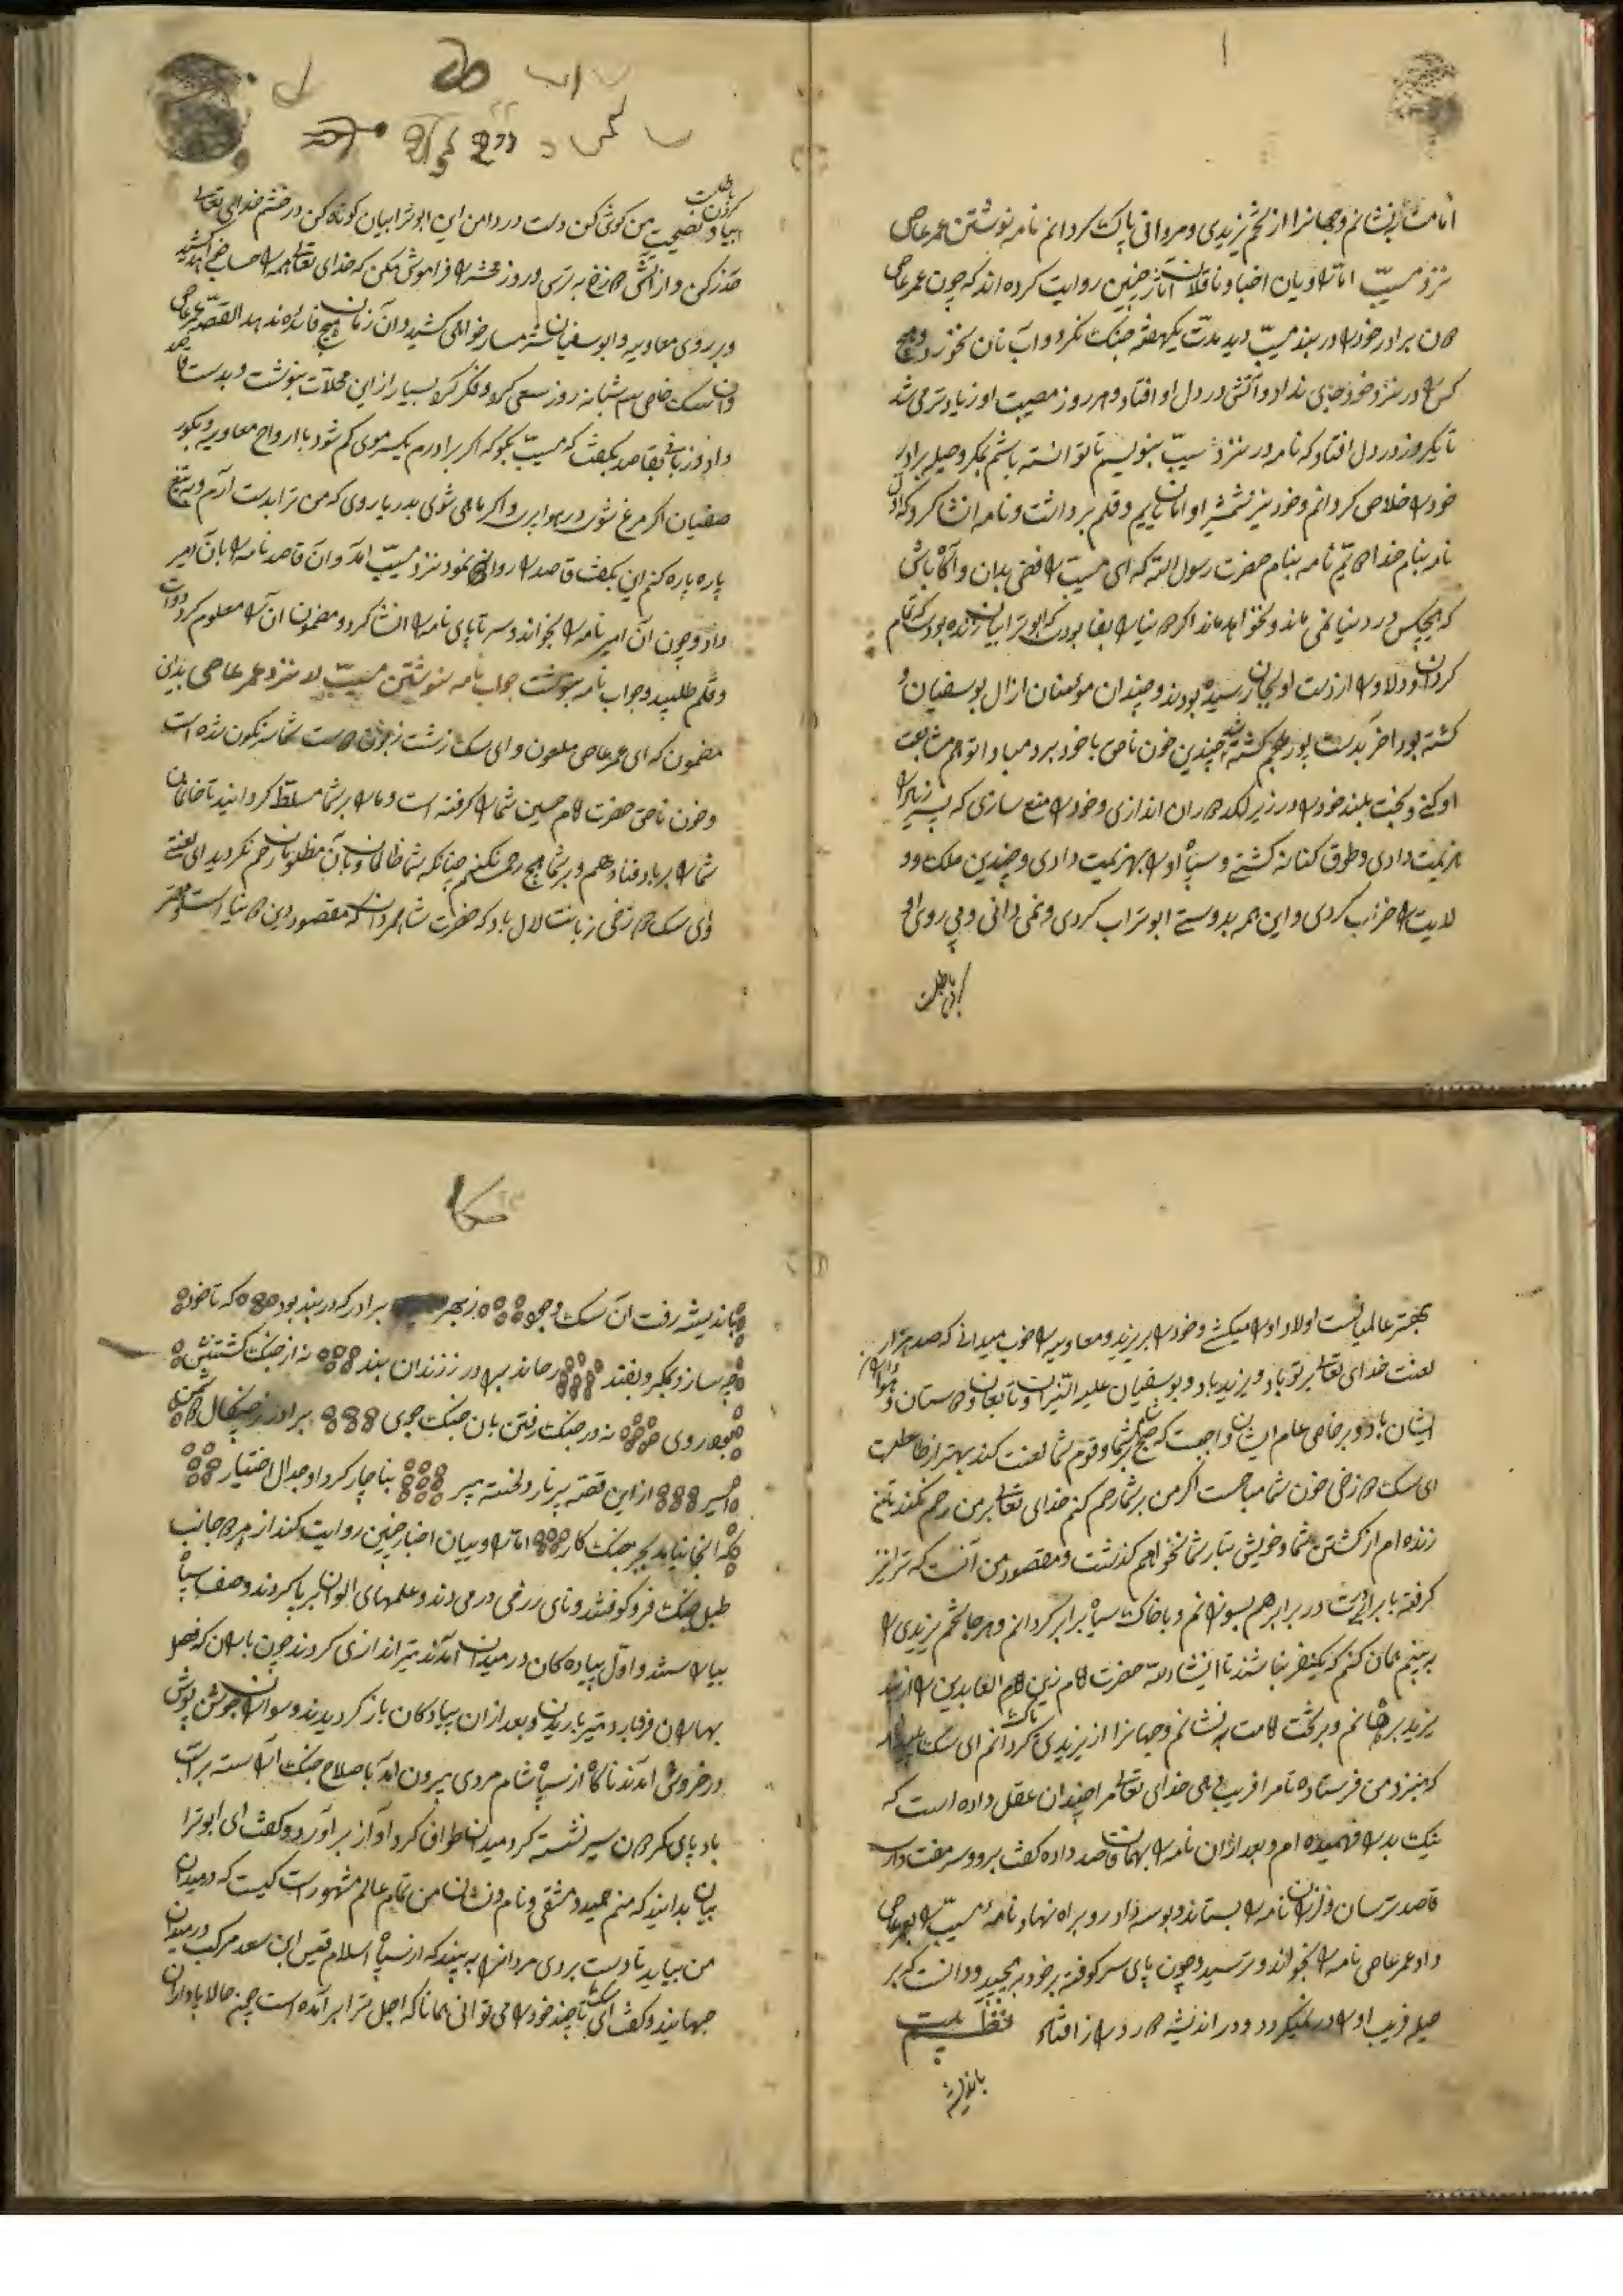 امامت بنشانم و جهانرا از تخم یزیدی و مروانی پاک گردانم نامه نوشتن عمر عاص
نزد مسیّب امّا راویان اخبار و ناقلان آثار چنین روایت کرده اند که چون عمر عاص
آن برادر خود را در بند مسیّب دید مدّت یکهفته جنگ نکرد و آب نان نخورد و هیچ
کس را در نزد خود جای نداد و آتش در دل او افتاد و هر روز مصیبت او زیادتر می شد
تا یکروز در دل افتاد که نامه در نزد مسیّب بنویسم تا توانسته باشم بمکر و حیله برادر
خود را خلاص گردانم و خود نیز شمشیر او امان یابم و قلم برداشت و نامه انشا کرد که اول
نامه بنام خدا دیّم نامه بنام حضرت رسول الله که ای مسیّب رافضی بدان و آگاه باش
که هیچکس در دنیا نمی ماند و نخواهد ماند اگر دنیا را بقا بودی ابوترابیان زنده بودی که تمام
گردان و دلاوران از دست او بجان رسیده بودند و چندان مؤمنان از ال بوسفیان
کشته بود اخر بدست پور ملجم کشته شد چندین خون ناحق با خود برد مبادا تو هم متابعت
او کنی و بخت بلند خود را در زیر لگد اندازی و خود را منع سازی که پسر زیاد را
هزیمت دادی و طوق کنانه کشتی و سپاه او را بهزیمت دادی و چندین ملک و و
لایت را خراب کردی و این همه بدوستی ابوتراب کردی و نمی دانی و پی روی او
کردن باطلست
کردن باطلست
بیا و نصیحت من گوش کن دست در دامن این ابوترابیان کوتاه کن در خشم خدای تعالی
حذر کن و از آتش دوزخ بترس و روز محشر را فراموش مکن که خدای تعالی همه را حساب خواهد کشید
و بر روی معاویه و ابوسفیان شرمسار خواهی کشید و آن زمان هیچ فائده ندهد القصّه عمر عاص
و آن سگ خاص سه شبانه روز سعی کرد و فکر کرد بسیار از این محلات بنوشت و بدست قاصد
داد و زبانی بقاصد بگفت که مسیّب بگو که اگر برادرم یکسر موی کم شود با ارواح معاویه و بکور
سفیان اگر مرغ شوی در هوا پری و اگر ماهی شوی بدریا روی که من ترا بدست آرم و به تیغ
پاره پاره کنم این بگفت قاصد را روانه نمود نزد مسیّب آمد و آن قاصد نامه را بآن امیر
داد و چون آن امیر نامه را بخواند و سر تا پای نامه را انشا کرد و مضمون آن را معلوم کرد دوات
و قلم طلبید و جواب نامه بنوشت جواب نامه نوشتن مسیّب در نزد عمر عاص بدین
مضمون که ای عمر عاص ملعون و ای سگ زشت زبون دست شما سرنگون شده است
و خون ناحق حضرت امام حسین شما را گرفته است و ما را بر شما مسلّط گردانید تا خانمان
شما را برباد فنا دهم و بر شما هیچ رحم نکنم چنانکه شما ظالمان بآن مظلومان رحم نکردید ای لعنتی
وای سگ دوزخی زبانت لال باد که حضرت شاه مردان که مقصود دین دنیا است و مهتر
بهتر عالمیانست اولاد او را میکشی و خود را بر یزید و معاویه را خوب میدانی که صد هزار
لعنت خدای تعالی بر تو باد و یزید باد و بوسفیان علیه النیران و تابعان و دوستان و هواداران
ایشان باد و بر خاص عام ایشان واجبست که صبح شام بر شما و قوم شما لعنت کند بهتر از طاعتست
ای سگ دوزخی خون شما مباحست اگر من بر شما رحم کنم خدای تعالی بر من رحم نکند تا من
زنده ام از کشتن شما و خویش تبار شما نخواهم گذشت و مقصود من آنست که ترا نیز
گرفته با برادرت در برابر هم بسوزانم و با خاک سیاه برابر گردانم و هر جا تخم یزیدی را
به بینم همان کنم که یکنفر نباشند تا انشاء الله حضرت امام زین العابدین را از بند
یزید برهانم و بر تخت امامت بنشانم و جهانرا از یزیدی پاک گردانم ای سگ
که بنزد من فرستاده تا مرا فریب دهی خدای تعالی مرا چندان عقل داده است که
نیک بد را فهمیده ام و بعد از آن نامه را بهمان قاصد داده گفت برو و سر مفت دار
قاصد ترسان و لرزان نامه را بستاند و بوسه داد رو براه نهاد و نامهٔ مسیّب را بعمر عاص
داد عمر عاص نامه را بخواند و ترسید و چون پای سر کوفته بر خود به پیچید و دانست که بر
حیله فریب او را در نمیگردد و در اندیشه دور دراز افتاد نظمیت
باندیشه
باندیشه رفت آن سگ جو ز بهر برادر که در بند بود که تا خود
چه سازد بمکر و بفند رهاند برادر ز زندان بند نه از جنگ کشتنش
بود روی نه در جنگ رفتن بآن جنگ جوی برادر ز چنگال دشمن
اسیر از این قصّه بر نار دلخسته پیر بناچار کرد او جدال اختیار
که انجا نیاید بجز جنگ کار امّا راویان اخبار چنین روایت کنند از هر دو جانب
طبل جنگ فرو کوفتند و نای رزمی در می دند و علمهای الوان بر پا کردند و صف سپاه
بیاراستند و اول پیاده کان در میدان آمدند تیر اندازی کردند چون باران که فصل
بهاران فرو بارد تیر باریدن و بعد از آن پیادکان باز گردیدند و سواران جوشن پوش
در خروش آمدند ناگاه از سپاه شام مردی بیرون آمد با صلاح جنگ آراسته بر اسب
باد پای نشسته گرد میدان طواف کرد آواز برآورد و گفت ای ابوترا
بیان بدانید که منم حمید دمشقی و نام و نشان من تمام عالم مشهور است کیست که در میدان
من بیاید تا دست بردی مردانرا به بیند که از سپاه اسلام قیس ابن سعد مرکب در میدان
جهانید و گفت ای سگ تا چند خود را می توانی همانا که اجل ترا برآمده است